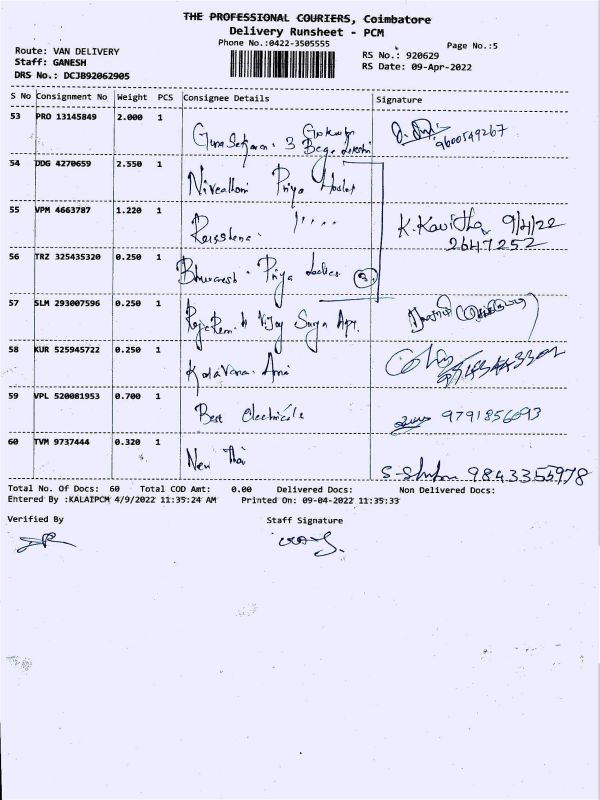 THE PROFESSIONAL COURIERS, Coimbatore
Delivery Runsheet - PCM
Phone No.:0422-3505555
Page No.:5
Route: VAN DELIVERY
Staff: GANESH
DRS No.: DCJB92062905
RS No.: 920629
RS Date: 09-Apr-2022
S No Consignment No Weight PCS Consignee Details Signature
53 PRO 13145849 2.000 1
9600549267
54 DDG 4270659 2.550 1 Priya Hostel
55 VPM 4663787 1.220 1 K. Kavitha 9/4/22
2647252
56 TRZ 325435320 0.250 1 Priya Ladies
57 SLM 293007596 0.250 1 Vijay Surya Apr.
58 KUR 525945722 0.250 1
59 VPL 520081953 0.700 1 Best Electricals 9791856093
60 TVM 9737444 0.320 1 New 9843355978
Total No. Of Docs: 60 Total COD Amt: 0.00 Delivered Docs: Non Delivered Docs:
Entered By :KALAIPCM 4/9/2022 11:35:24 AM Printed On: 09-04-2022 11:35:33
Verified By Staff Signature